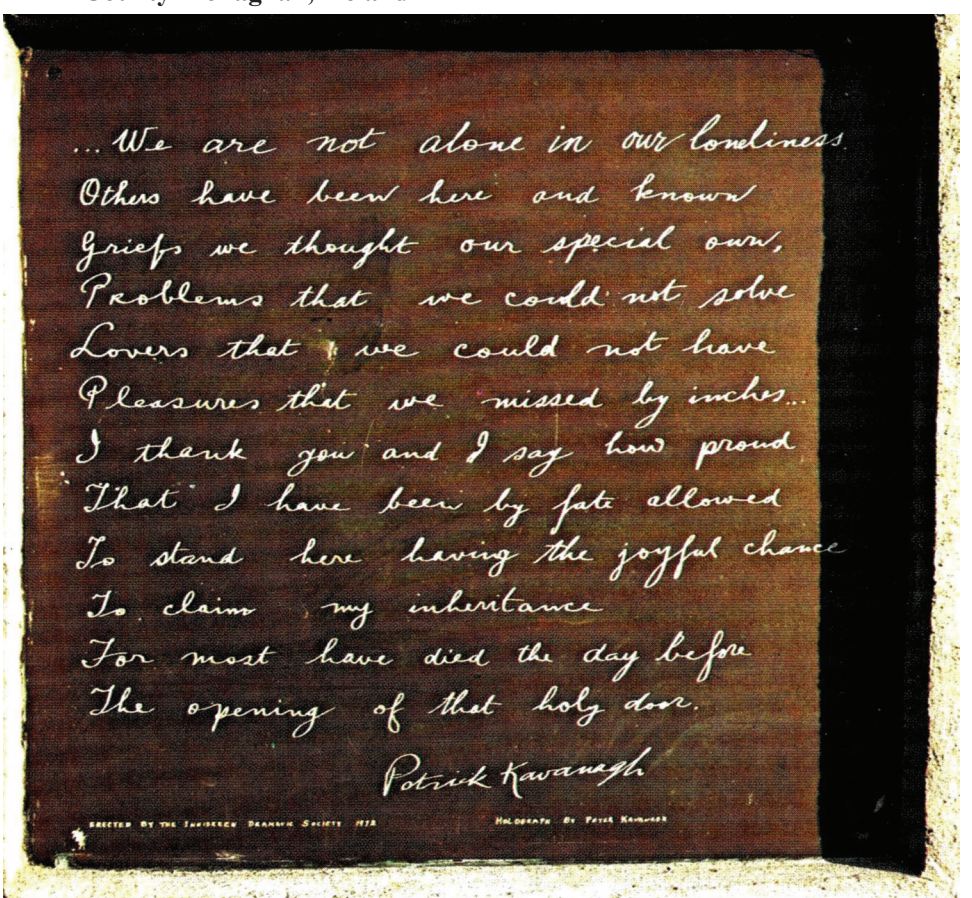 ...We are not alone in our loneliness.
Others have been here and known
Griefs we thought our special own,
Problems that we could not solve
Lovers that we could not have
Pleasures that we missed by inches...
I thank you and I say how proud
That I have been by fate allowed
To stand here having the joyful chance
To claim my inheritance
For most have died the day before
The opening of that holy door.
Patrick Kavanagh
ERECTED BY THE INNISKEEN DRAMATIC SOCIETY 1972 HOLOGRAPH BY PETER KAVANAGH